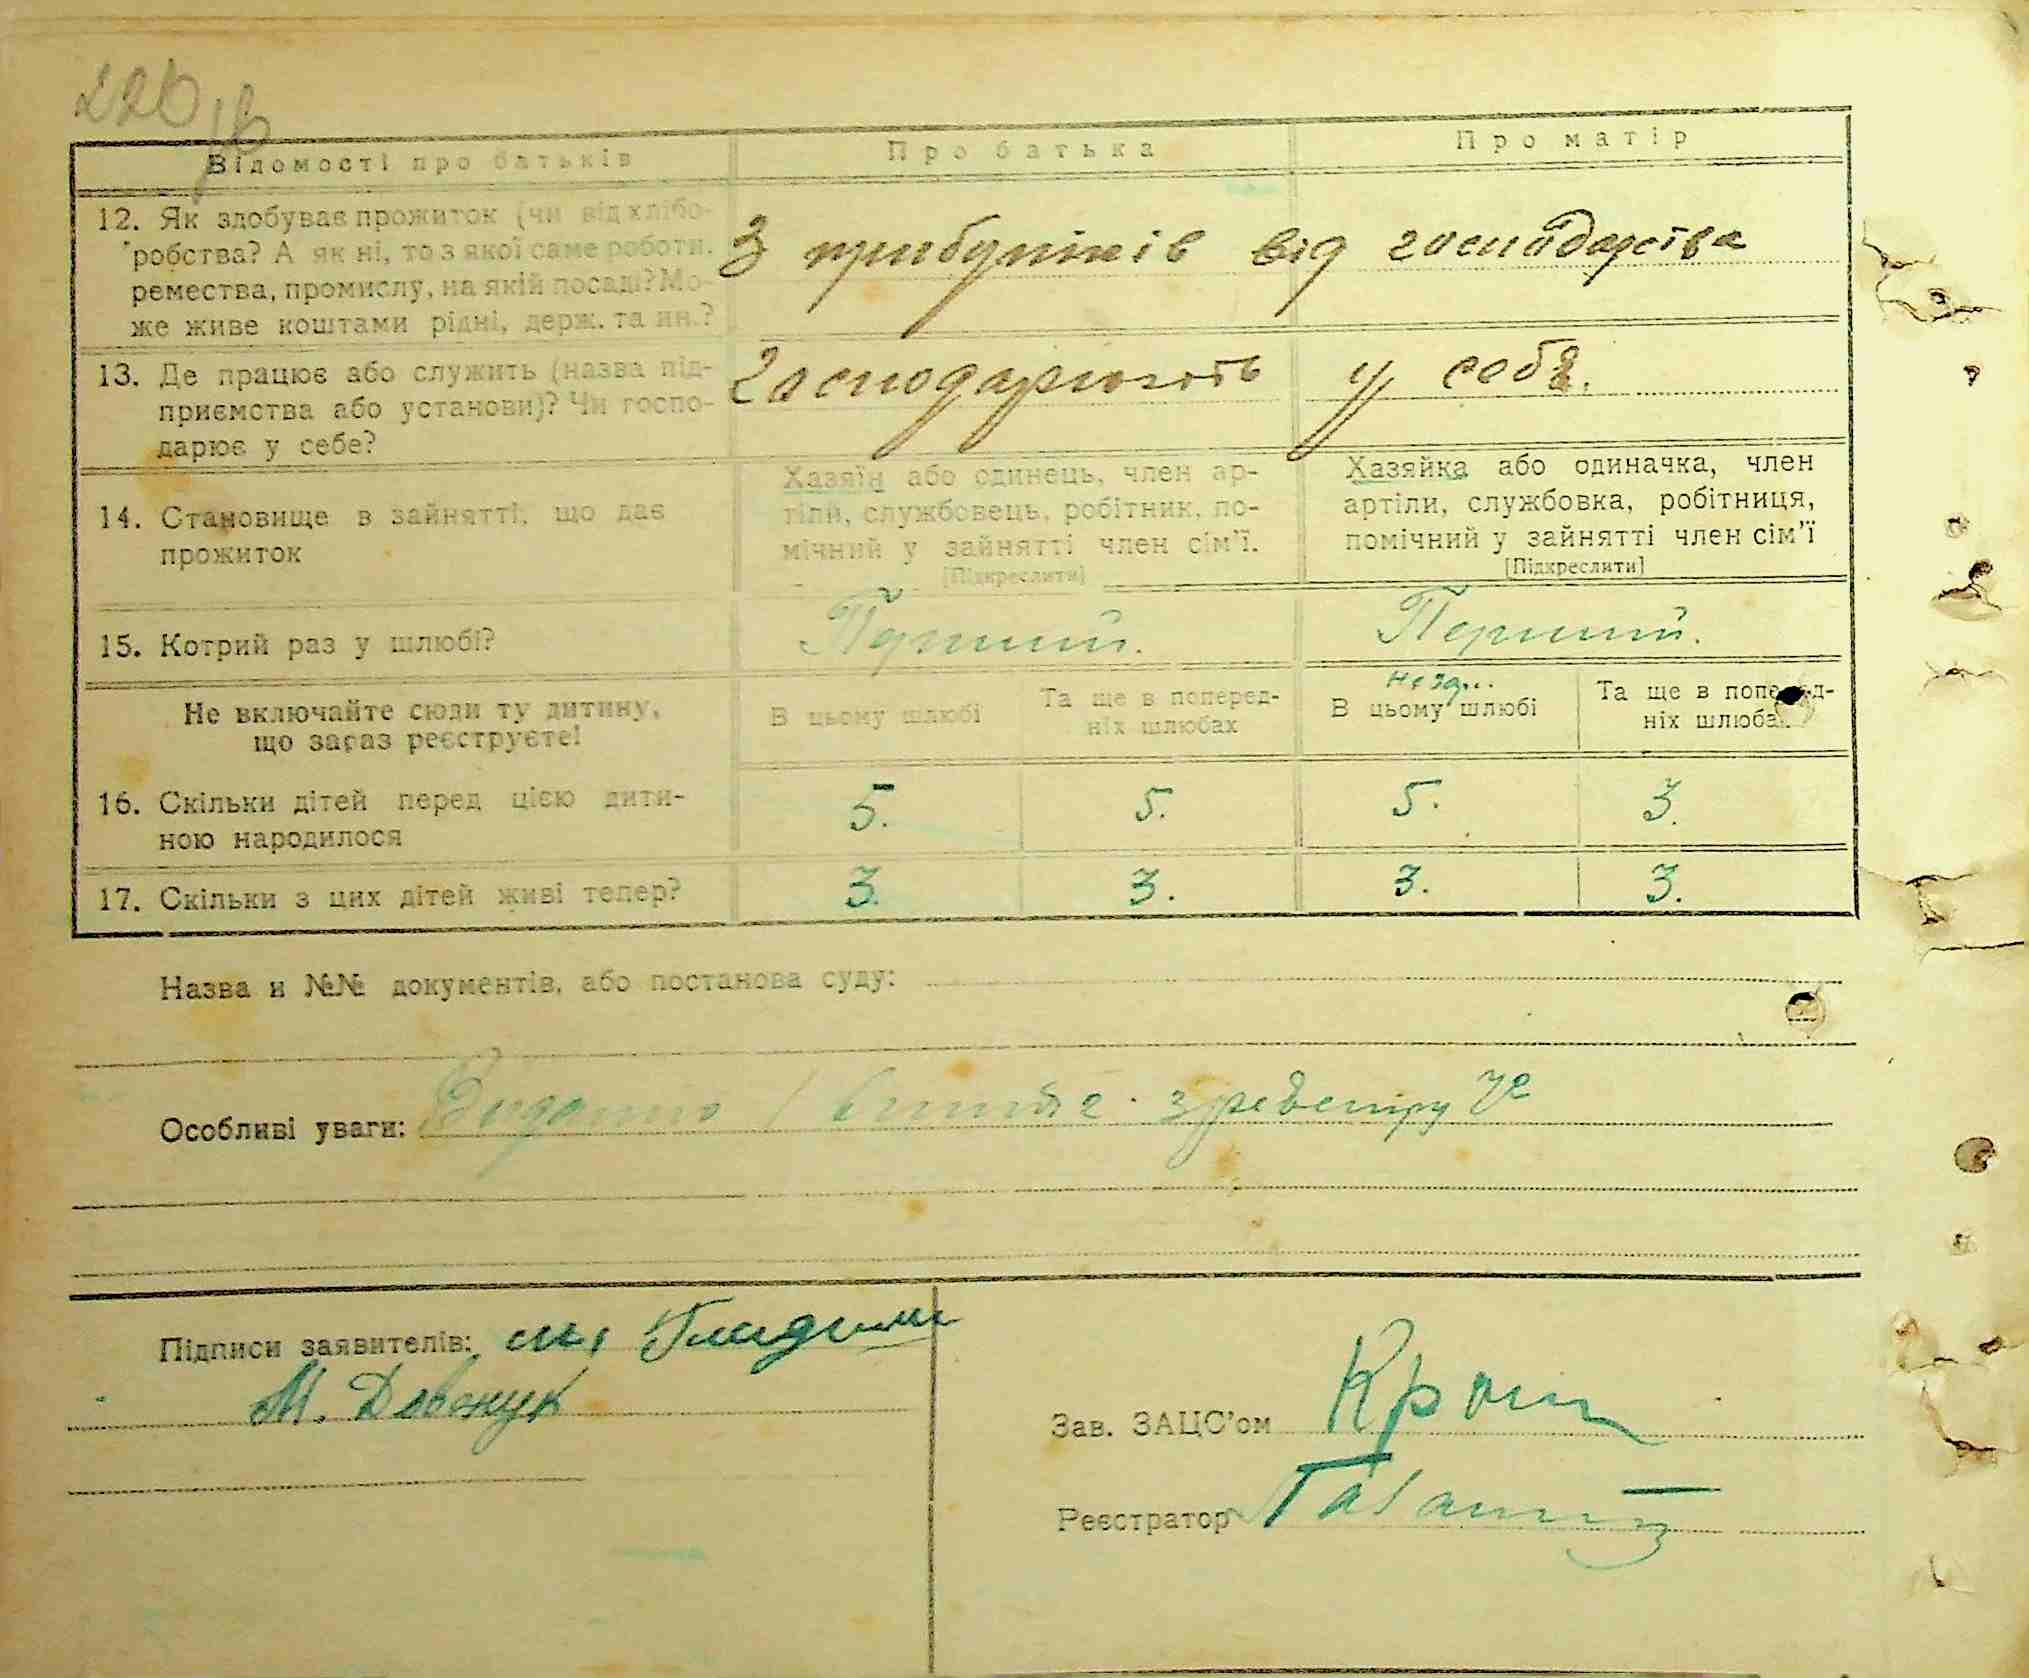 226
Відомості про батьків
Про батька
Про матір
12. Як здобуває прожиток (чи від хлібо-
робства? А як ні, то з якої саме роботи,
ремества, промислу, на якій посаді? Мо-
же живе коштами рідні, держ. та ин.?
З прибутків від господарства
13. Де працює або служить (назва під-
приємства або установи)? Чи госпо-
дарює у себе?
Господарюють у себе.
14. Становище в зайнятті, що дає
прожиток
Хазяїн або одинець, член ар-
тілі, службовець, робітник, по-
мічний у зайнятті член сім'ї.
[Підкреслити]
Хазяйка або одиначка, член
артіли, службовка, робітниця,
помічний у зайнятті член сім'ї
[Підкреслити]
15. Котрий раз у шлюбі?
Перший.
Перший.
Не включайте сюди ту дитину,
що зараз реєструєте!
В цьому шлюбі
Та ще в поперед-
ніх шлюбах
В цьому шлюбі
Та ще в поперед-
ніх шлюбах
16. Скільки дітей перед цією дити-
ною народилося
5. 5. 5. 3.
17. Скільки з цих дітей живі тепер?
3. 3. 3. 3.
Назва и №№ документів, або постанова суду:
Особливі уваги: Видано
Підписи заявителів:
М. Довжук
Зав. ЗАЦС'ом
Реєстратор